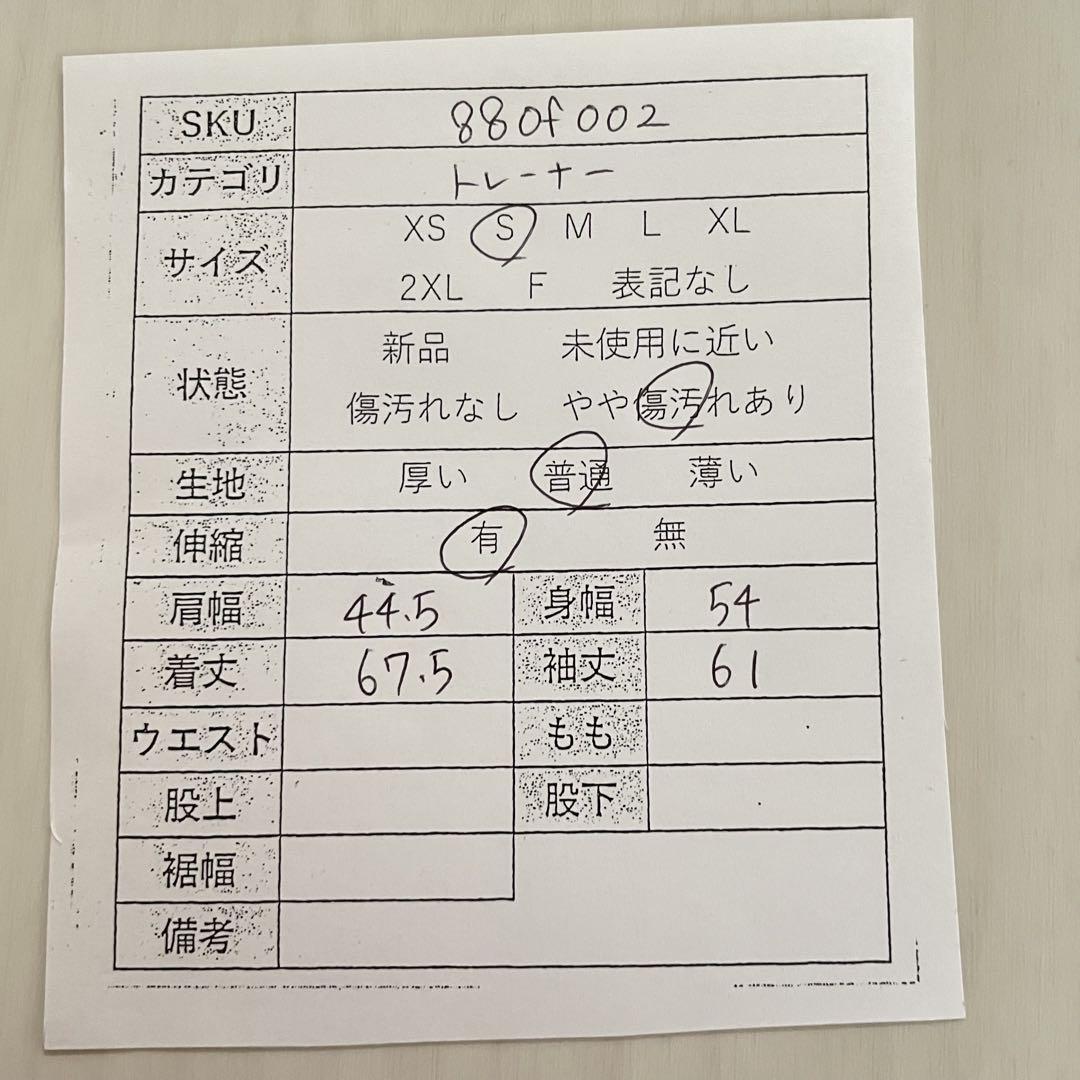 SKU 880f002
カテゴリ トレーナー
サイズ XS S M L XL
2XL F 表記なし
状態 新品 未使用に近い
傷汚れなし やや傷汚れあり
生地 厚い 普通 薄い
伸縮 有 無
肩幅 44.5 身幅 54
着丈 67.5 袖丈 61
ウエスト もも
股上 股下
裾幅
備考